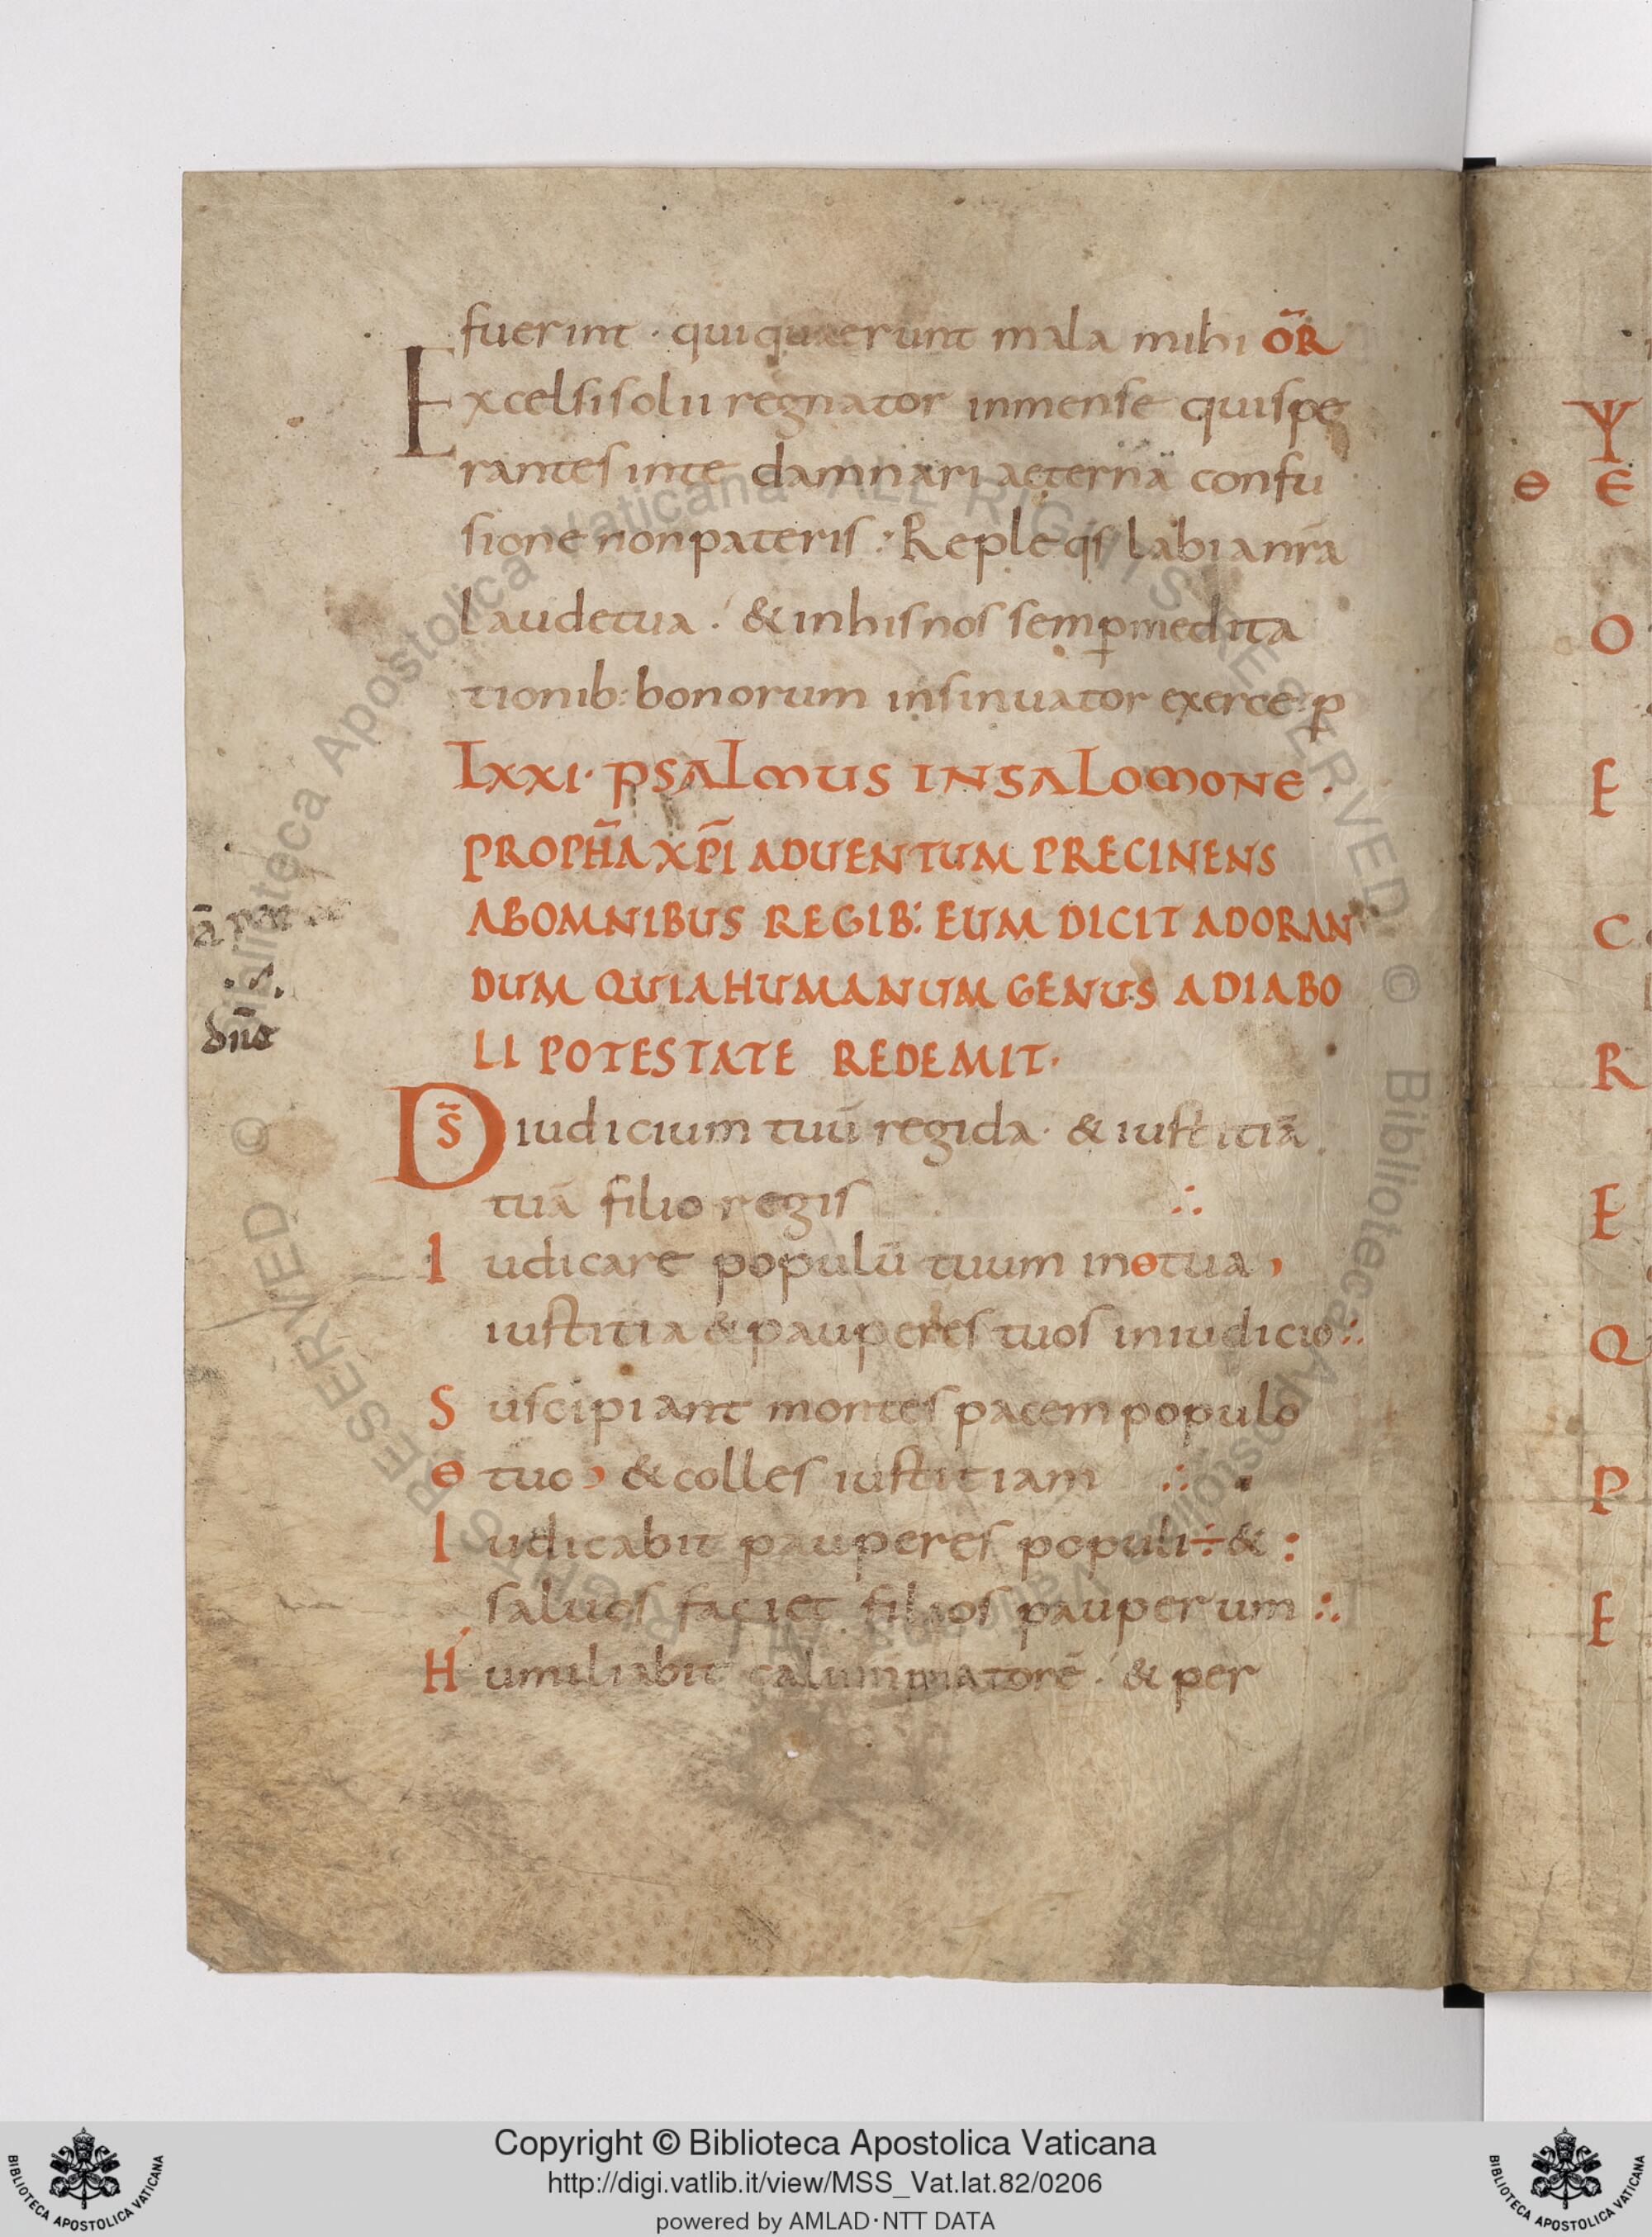 fuerint · qui quaerunt mala mihi OR̄
Excelsi solii regnator inmense qui spe
rantes in te damnari aeterna confu
sione non pateris : Reple qs labia nr̄a
laude tua . & in his nos semꝑ medita
tionib: bonorum insinuator exerce · ꝑ
LXXI · PSALMUS IN SALOMONE ·
PROPH̄A XP̄I ADUENTUM PRECINENS
AB OMNIBUS REGIB: EUM DICIT ADORAN
DUM QUIA HUMANUM GENUS A DIABO
LI POTESTATE REDEMIT ·
dn̄e
DS̄ iudicium tuū regi da · & iustitiā
tuā filio regis ∴
Iudicare populū tuum in ɵ tua ,
iustitia & pauperes tuos in iudicio ∴
Suscipiant montes pacem populo
ɵ tuo , & colles iustitiam ∴
Iudicabit pauperes populi ÷ & :
saluos faciet filios pauperum ∴
Humiliabit calumniatorē . & per
Ψ
ɵ E
O
E
C
R
E
Q
P
E
© Biblioteca Apostolica Vaticana ALL RIGHTS RESERVED © Biblioteca Apostolica Vaticana ALL RIGHTS RESERVED
Copyright © Biblioteca Apostolica Vaticana
http://digi.vatlib.it/view/MSS_Vat.lat.82/0206
powered by AMLAD·NTT DATA
BIBLIOTECA APOSTOLICA VATICANA
BIBLIOTECA APOSTOLICA VATICANA